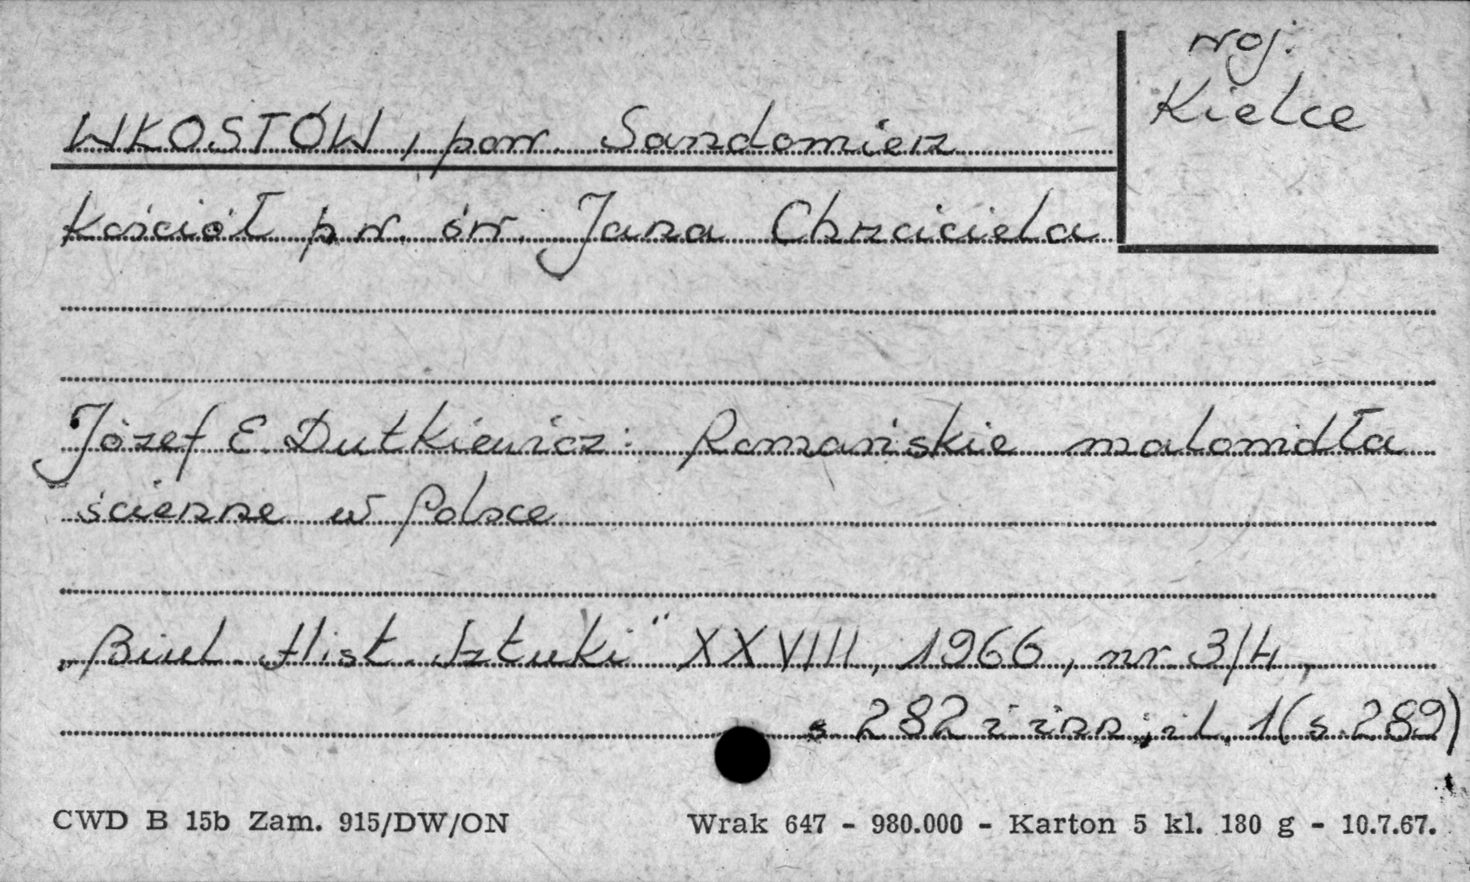 woj.
Kielce
WKOSTÓW, pow. Sandomierz
Kościół p.w. św. Jana Chrzciciela
Józef E. Dutkiewicz: Romańskie malowidła
ścienne w Polsce
„Biul. Hist. Sztuki" XXVIII, 1966, nr 3/4,
s 282 i inn; il. 1 (s. 289)
CWD B 15b Zam. 915/DW/ON Wrak 647 - 980.000 - Karton 5 kl. 180 g - 10.7.67.